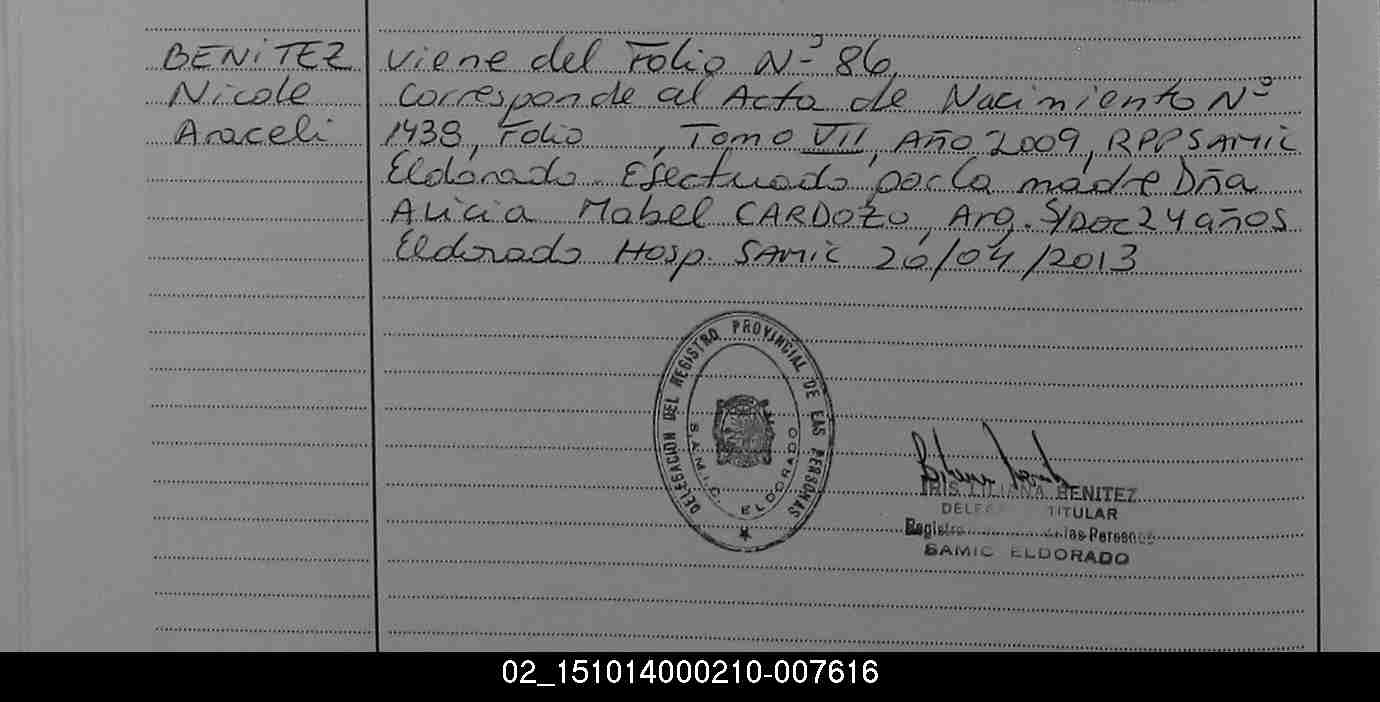 BENITEZ
Nicole
Araceli
Viene del Folio Nº 86,
Corresponde al Acta de Nacimiento Nº
1438, Folio , Tomo VII, Año 2009, RPP SAMIC
Eldorado. Efectuado por la madre Dña
Alicia Mabel CARDOZO, Arg. S/Doc 24 años
Eldorado Hosp. SAMIC 26/04/2013
DELEGACION DEL REGISTRO PROVINCIAL DE LAS PERSONAS
S.A.M.I.C. ELDORADO
IRIS LILIANA BENITEZ
TITULAR
Registro las Personas
SAMIC ELDORADO
02_151014000210-007616